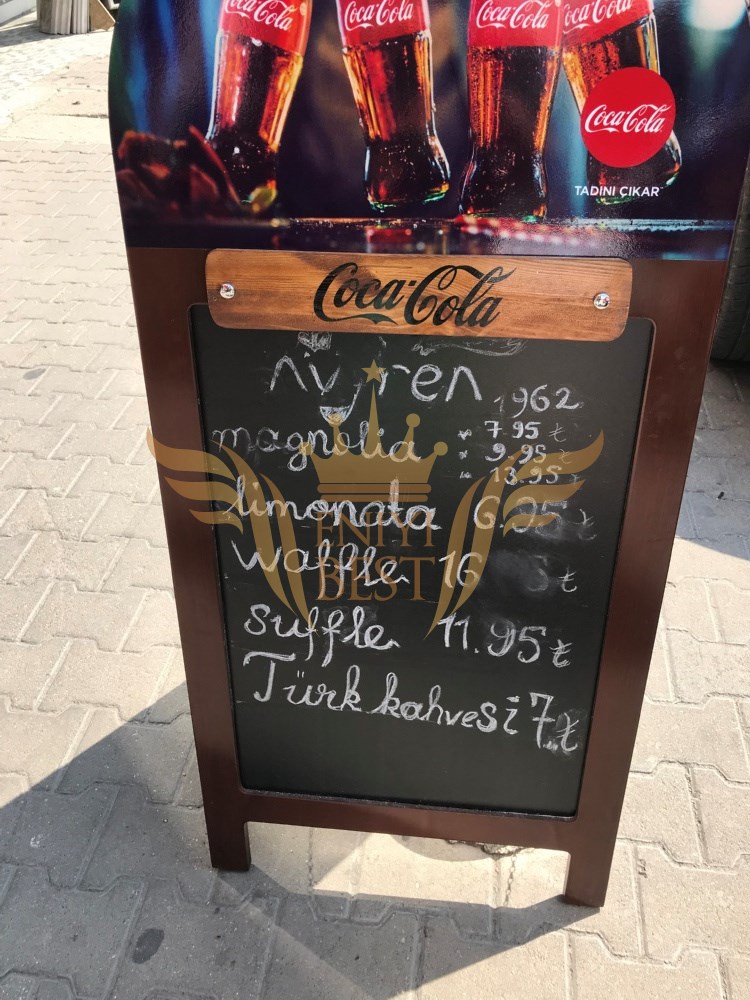 Coca-Cola
Coca-Cola
Coca-Cola
Coca-Cola
Coca-Cola
TADINI ÇIKAR
Coca-Cola
1962
magnolia 7.95 ₺
9.95 ₺
13.95 ₺
limonata 6.25 ₺
waffle 16 ₺
suffle 11.95 ₺
Türk kahvesi 7 ₺
ENİYİ
BEST